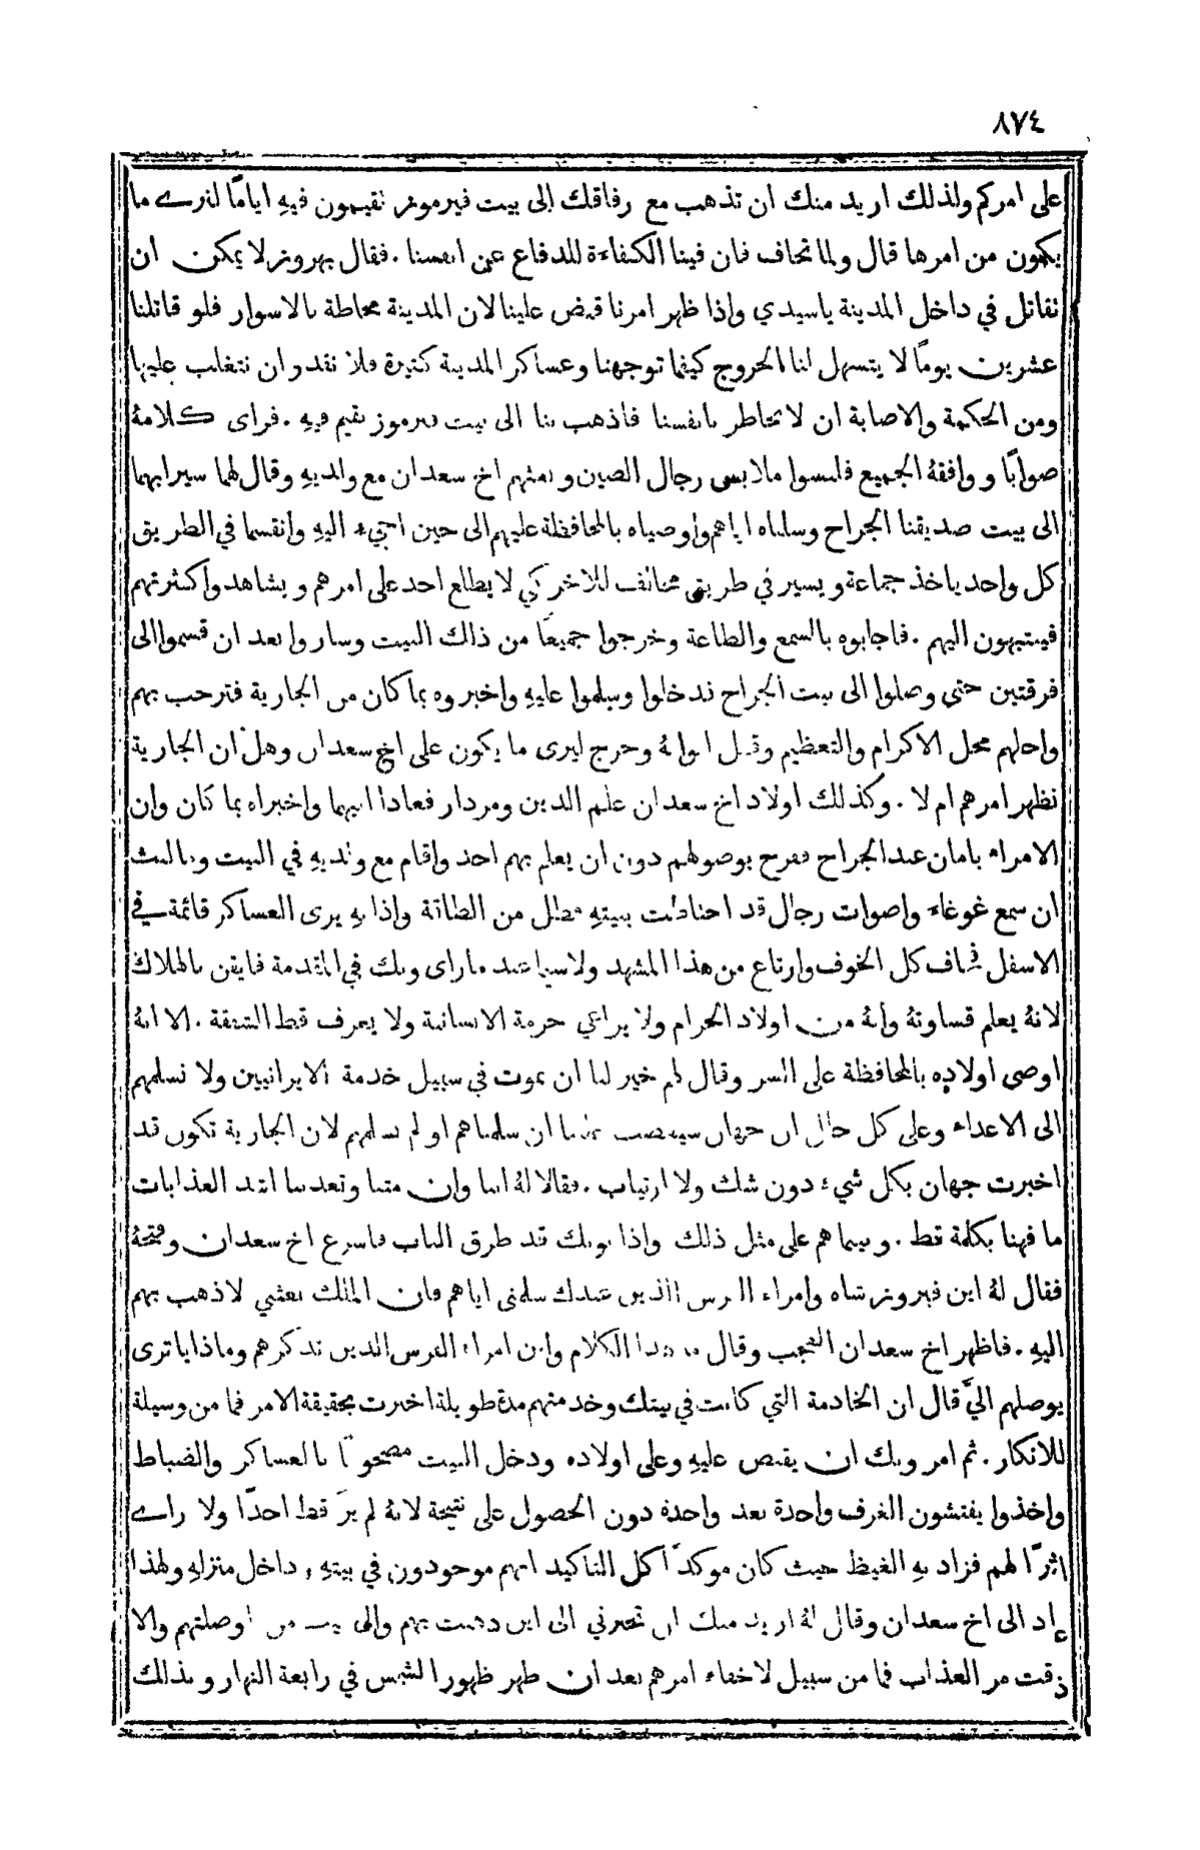 ٨٧٤
على امركم ولذلك اريد منك ان تذهب مع رفاقك الى بيت فيرموز نقيمون فيهِ ايامًا لنرے ما
يكون من امرها قال ولما نخاف فان فينا الكفاءة للدفاع عن انفسنا . فقال بهروز لا يمكن ان
نقاتل في داخل المدينة ياسيدي وإذا ظهر امرنا قبض علينا لان المدينة محاطة بالاسوار فلو قاتلنا
عشرين يومًا لا يتسهل لنا الخروج كيفما توجهنا وعساكر المدينة كثيرة فلا نقدر ان نتغلب عليها
ومن الحكمة والاصابة ان لا نخاطر بانفسنا فاذهب بنا الى بيت فيرموز نقيم فيهِ . فراى كلامهُ
صوابًا ووافقهُ الجميع فلبسوا ملابس رجال الصين وبعثهم اخ سعدان مع ولديهِ وقال لهما سيرا بهما
الى بيت صديقنا الجراح وسلماه اياهم واوصياه بالمحافظة عليهم الى حين اجيء اليهِ وانقسما في الطريق
كل واحد ياخذ جماعة ويسير في طريق مخالف للاخر كي لا يطلع احد على امرهم ويشاهدوا كثرتهم
فينتبهون اليهم . فاجابوه بالسمع والطاعة وخرجوا جميعًا من ذاك البيت وساروا بعد ان قسموا الى
فرقتين حتى وصلوا الى بيت الجراح فدخلوا وسلموا عليهِ واخبروه بما كان من الجارية فترحب بهم
واحلهم محل الاكرام والتعظيم وقفل ابوابهُ وخرج ليرى ما يكون على اخ سعدان وهل ان الجارية
تظهر امرهم ام لا . وكذلك اولاد اخ سعدان علم الدين ومردار فعادا ابيهما واخبراه بما كان وان
الامراء بامان عند الجراح ففرح بوصولهم دون ان يعلم بهم احد واقام مع ولديهِ في البيت وما لبث
ان سمع غوغاء واصوات رجال قد احتاطت ببيتهِ فطل من الطاقة وإذا بهِ يرى العساكر قائمة في
الاسفل فخاف كل الخوف وارتاع من هذا المشهد ولاسيما عند ما راى وبك في المقدمة فايقن بالهلاك
لانهُ يعلم قساوتهُ وانهُ من اولاد الحرام ولا يراعي حرمة الانسانية ولا يعرف قط الشفقة . الا انهُ
اوصى اولاده بالمحافظة على السر وقال لهم خير لنا ان نموت في سبيل خدمة الايرانيين ولا نسلمهم
الى الاعداء وعلى كل حال ان جهان سيغضب علينا ان سلمناهم او لم نسلمهم لان الجارية تكون قد
اخبرت جهان بكل شيء دون شك ولا ارتياب . فقالا لهُ اننا وإن متنا وتعذبنا اشد العذابات
ما فهنا بكلمة قط . وبينما هم على مثل ذلك وإذا بوبك قد طرق الباب فاسرع اخ سعدان وفتحهُ
فقال لهُ اين فيروز شاه وامراء الفرس الذين عندك سلمني اياهم فان الملك بعثني لاذهب بهم
اليهِ . فاظهر اخ سعدان التعجب وقال ما هذا الكلام واين امراء الفرس الذين تذكرهم وماذا ياترى
يوصلهم اليَّ قال ان الخادمة التي كانت في بيتك وخدمتهم مدة طويلة اخبرت بحقيقة الامر فما من وسيلة
للانكار . ثم امر وبك ان يقبض عليهِ وعلى اولاده ودخل البيت مصحوبًا بالعساكر والضباط
واخذوا يفتشون الغرف واحدة بعد واحدة دون الحصول على نتيجة لانهُ لم يرَ قط احدًا ولا راے
اثرًا لهم فزاد بهِ الغيظ حيث كان موكدًا كل التاكيد انهم موجودون في بيتهِ وداخل منزلهِ ولهذا
عاد الى اخ سعدان وقال لهُ اريد منك ان تخبرني الى اين ذهبت بهم والى بيت من اوصلتهم والا
ذقت مر العذاب فما من سبيل لاخفاء امرهم بعد ان ظهر ظهور الشمس في رابعة النهار وبذلك